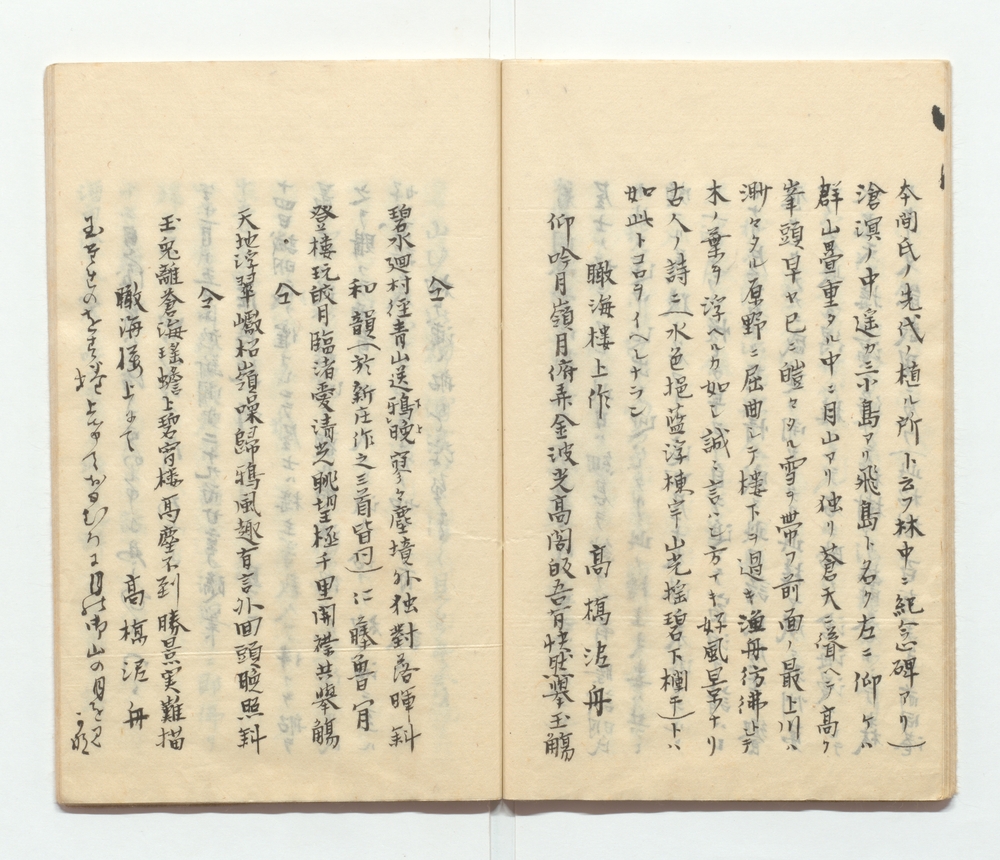 本間氏ノ先代ノ植ル所ト云フ林中ニ紀念碑アリ)
滄溟ノ中遥カニ小島アリ飛島ト名ク左ニ仰ケハ
群山畳重タル中ニ月山アリ独リ蒼天ニ聳ヘテ高ク
峯頭早ヤ已ニ皚々タル雪ヲ帯フ前面ノ最上川ハ
渺々タル原野ニ屈曲シテ楼下ヲ過キ漁舟彷彿トシテ
木ノ葉ヲ浮ヘルカ如シ誠ニ言ハレ方ナキ好風景ナリ
古人ノ詩ニ(水色挹藍浮棟宇山光揺碧下欄干)トハ
如此トコロヲイヘレナラン
瞰海楼上作 高槗泥舟
仰吟月嶺月俯弄金波光高閣飯吾有快然挙玉觴
仝
碧水廻村径青山送鴉晩寥々塵境外独対落暉斜
和韻(於新庄作之三首皆同) 仁藤魯月
登楼玩皎月臨渚愛清光眺望極千里開襟共挙觴
仝
天地浮翠巘松嶺噪帰鴉風趣有言外回頭晩照斜
仝
玉兎離蒼海瑤蟾上碧宵楼高塵不到勝景実難描
瞰海楼上にて 高槗泥舟
玉たれのをす捲上